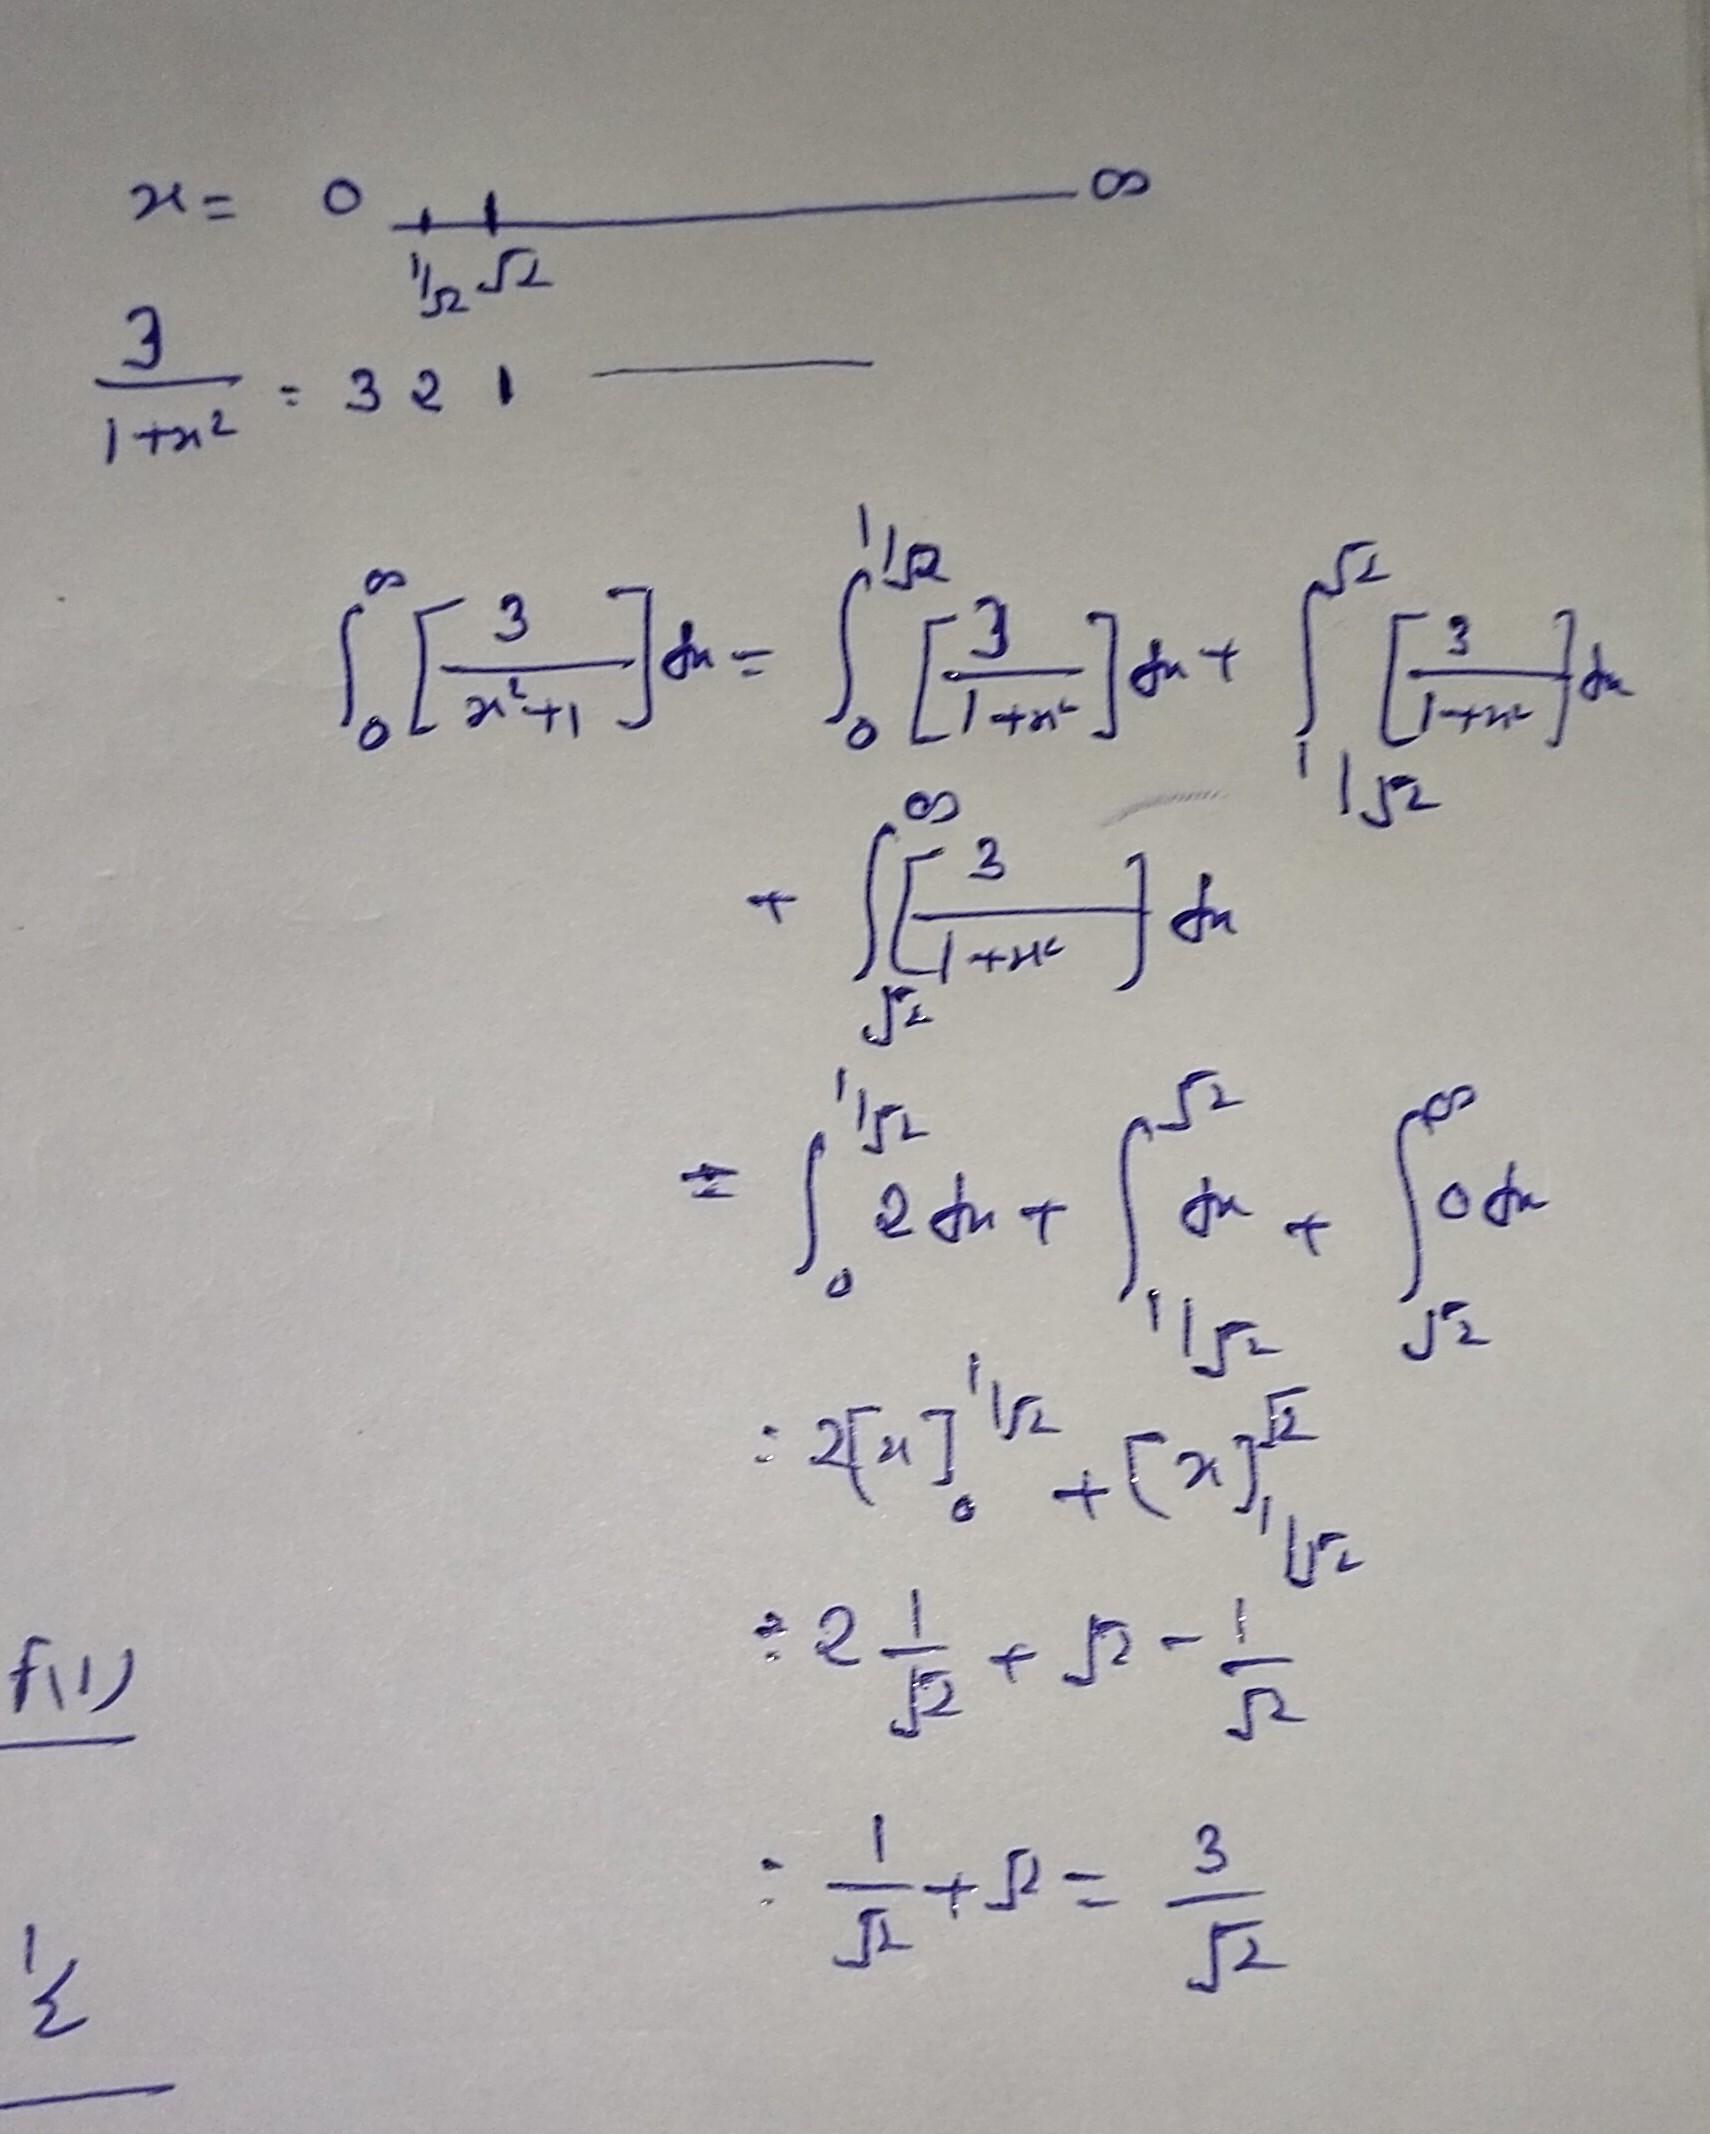 x = 0 ———— ∞
1/√2 √2
3/(1+x²) = 3 2 1 ————
∫₀^∞ [3/(x²+1)] dx = ∫₀^(1/√2) [3/(1+x²)] dx + ∫_(1/√2)^(√2) [3/(1+x²)] dx
+ ∫_(√2)^∞ [3/(1+x²)] dx
= ∫₀^(1/√2) 2 dx + ∫_(1/√2)^(√2) dx + ∫_(√2)^∞ 0 dx
= 2[x]₀^(1/√2) + [x]_(1/√2)^(√2)
= 2 1/√2 + √2 - 1/√2
f(1)
= 1/√2 + √2 = 3/√2